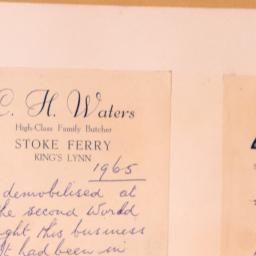 C. H. Waters
High-Class Family Butcher
STOKE FERRY
KING'S LYNN
1965
demobilised at
the second World
this business
It had been in